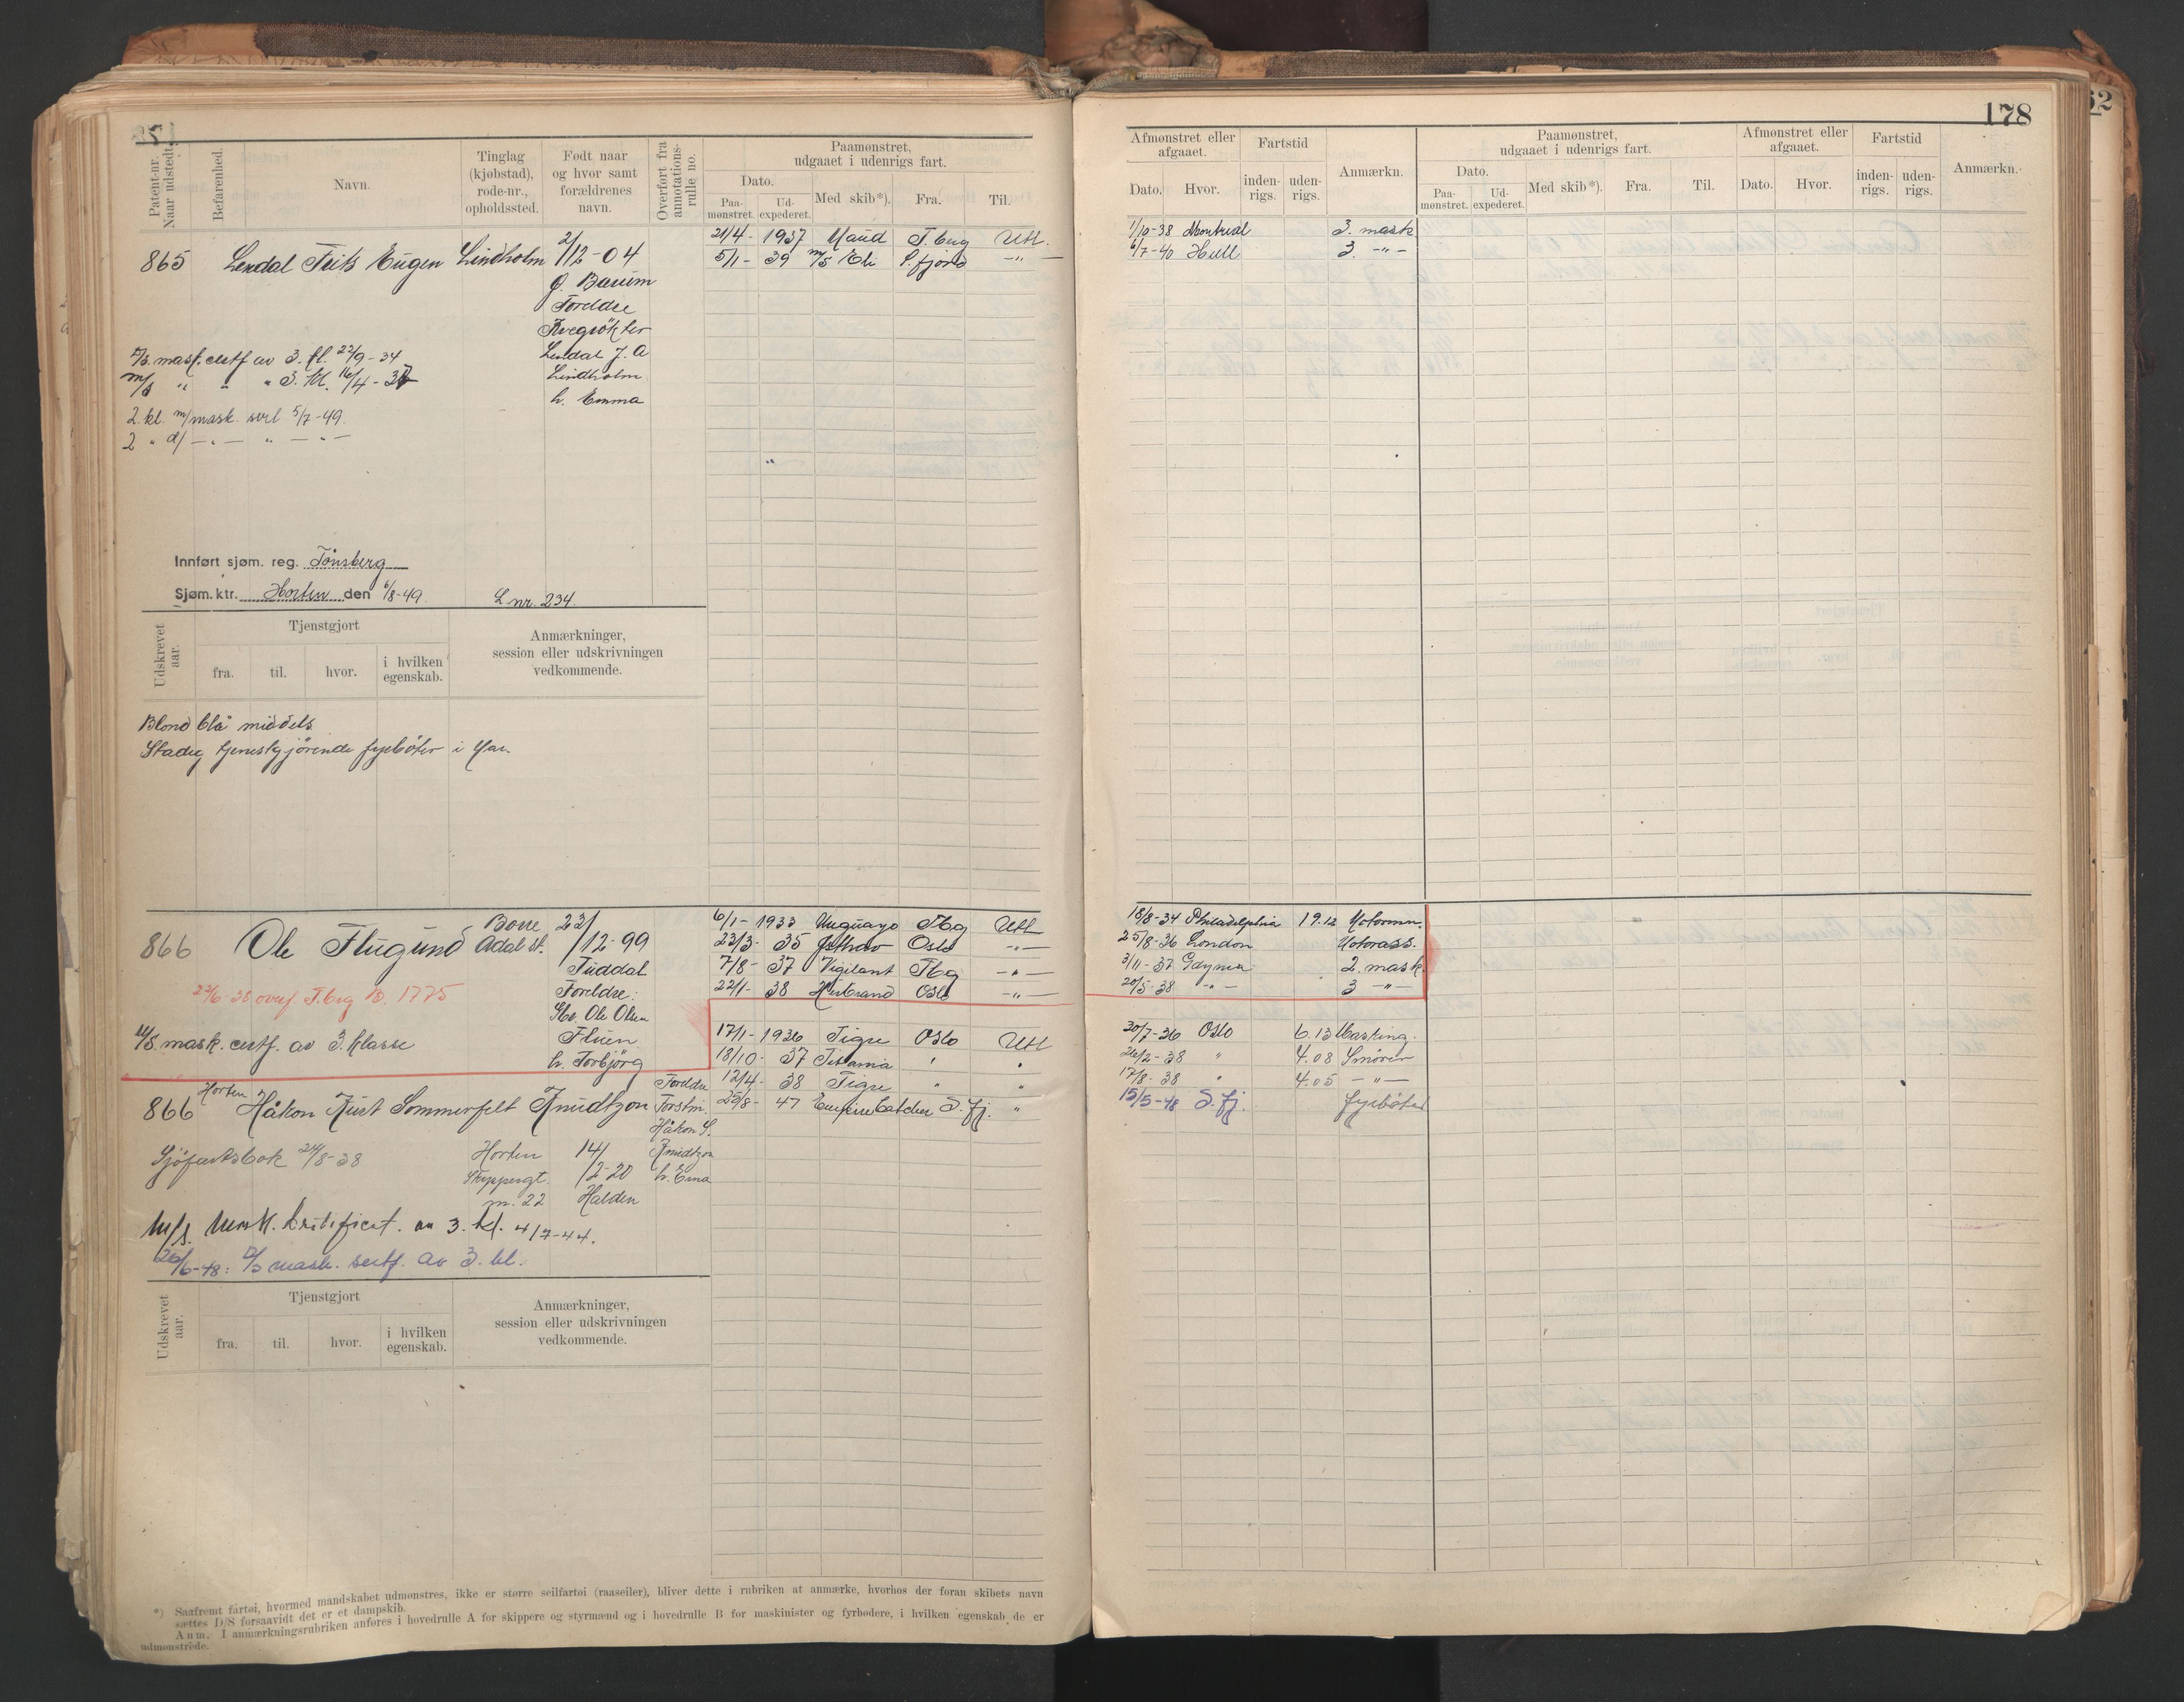 178
62
Patent-nr. Naar udstedt.
Befarenhed.
Navn.
Tinglag (kjøbstad), rode-nr., opholdssted.
Født naar og hvor samt forældrenes navn.
Overført fra annotations-rulle no.
Paamønstret, udgaaet i udenrigs fart.
Dato.
Paa-mønstret.
Ud-expederet.
Med skib*).
Fra.
Til.
Afmønstret eller afgaaet.
Dato.
Hvor.
Fartstid
inden-rigs.
uden-rigs.
Anmærkn.
Paamønstret, udgaaet i udenrigs fart.
Dato.
Paa-mønstret.
Ud-expederet.
Med skib*).
Fra.
Til.
Afmønstret eller afgaaet.
Dato.
Hvor.
Fartstid
inden-rigs.
uden-rigs.
Anmærkn.
865 Lendal Frits Eugen Lindholm 2/12-04
G. Barüm
Foreldre
Lendal J. A
Lindholm
h. Emma
21/4- 1937 Maud T.berg Utl.
5/1- 39 m/s Eli S.fjord -"-
1/10-38 Montreal 3. mask
6/7-40 Hull 3. -"-
D/s. mask. certf av 3. kl. 22/9-34
m/s " " " 3. kl. 16/4-37
2. kl. m/mask. sert 5/7-49.
2 " d/ - " - " - " -
Innført sjøm. reg. Tönsberg
Sjøm. ktr. Horten den 6/8-49. L nr. 234.
Udskrevet aar.
Tjenstgjort
fra.
til.
hvor.
i hvilken egenskab.
Anmærkninger, session eller udskrivningen vedkommende.
Blond blå middels
Stadig tjenestgjörende fyrböter i Mar.
866 Ole Flugund Borre Adal st. 23/12-99
Tuddal
Foreldre:
Gbr. Ole Olsen
Flüen
h. Torbjörg
6/1- 1933 Uruguayo Tbg Utl
23/3- 35 Østhav Oslo -"-
7/8- 37 Vigilant Tbg -"-
22/1- 38 Hilbrand Oslo -"-
18/8-34 Philadelphia 19.12 Motormn.
25/8-36 London Motorass.
3/11-37 Gdynia 2. mask.
20/5-38 -"- 3 -"-
27/6-38 overf. T.brg B. 1775
M/s. mask. certf. av 3. klasse
866 Horten Håkon Just Sommerfelt Knudtzon
Foreldre
Forstm.
Håkon S.
Knudtzon
h. Erna
Horten
Skippergt.
nr. 22
14/12-20
Halden
17/1- 1936 Tigre Oslo Utl
18/10- 37 Titania " "
12/4- 38 Tigre " "
25/8- 47 Empire Catcher S. fj. "
30/7-36 Oslo 6.13 Masking.
26/2-38 " 4.08 Smörer
17/8-38 " 4.05 -"-
15/5-48 S. fj. fyrböter
Sjöfartsbok 24/8-38
M/s. Mask. Certificat. av 3. kl. 4/7-44.
26/6-48: D/s mask. sertf. av 3. kl.
Udskrevet aar.
Tjenstgjort
fra.
til.
hvor.
i hvilken egenskab.
Anmærkninger, session eller udskrivningen vedkommende.
*) Saafremt fartøi, hvormed mandskabet udmønstres, ikke er større seilfartøi (raaseiler), bliver dette i rubriken at anmærke, hvorhos der foran skibets navn
sættes D/S forsaavidt det er et dampskib.
Anm. I anmærkningsrubriken anføres i hovedrulle A for skippere og styrmænd og i hovedrulle B for maskinister og fyrbødere, i hvilken egenskab de er
udmønstrede.